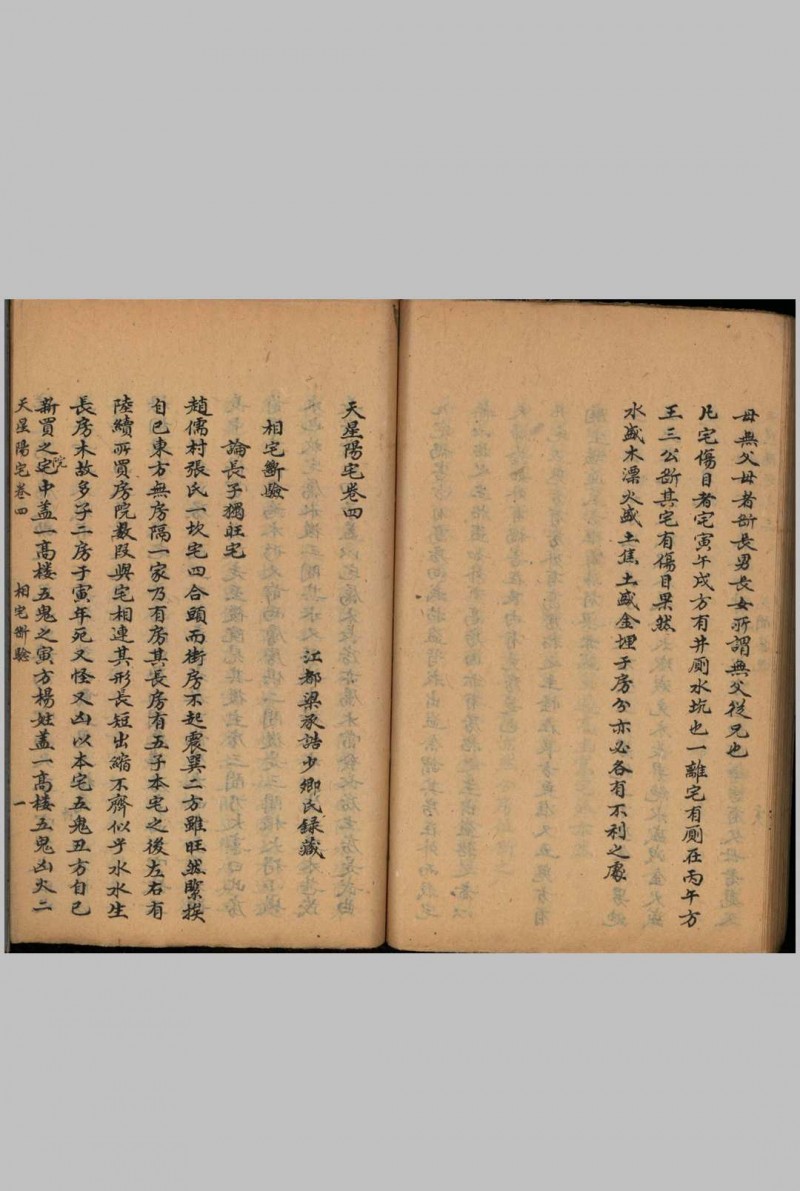 母無父母者斷長男長女所謂無父從兄也
凡宅傷目者宅寅午戌方有井厠水坑也一離宅有厠在丙午方
王三公斷其宅有傷目果然
水盛木漂火盛土焦土盛金埋于房分亦必各有不利之處
天星陽宅卷四
江都梁承誥少卿氏錄藏
相宅斷驗
論長子獨旺宅
趙儒村張氏一坎宅四合頭而街房不起震巽二方雖旺然緊挨
自已東方無房隔一家乃有房其長房有五子本宅之後左右有
陸續所買房院數段與宅相連其形長短出縮不齊似乎水水生
長房木故多子二房于寅年死又怪又凶以本宅五鬼丑方自已
新買之宅院中蓋一高楼五鬼之寅方楊姓蓋一高楼五鬼凶火二
天星陽宅卷四 相宅斷驗 一